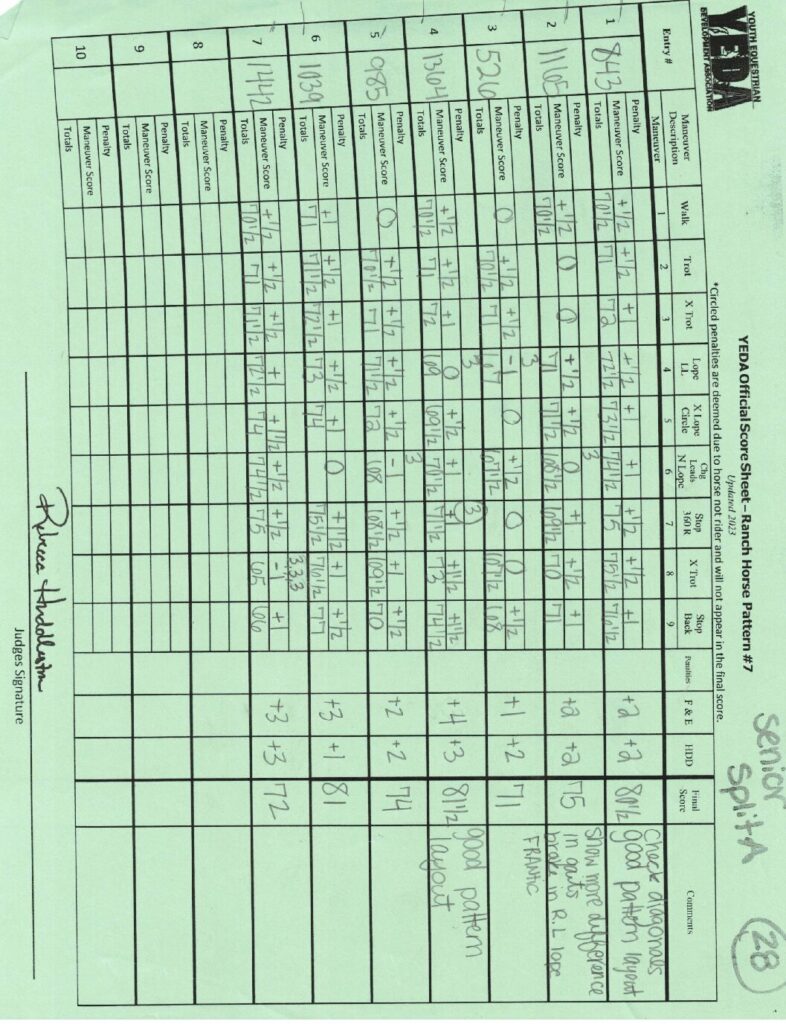 YOUTH EQUESTRIAN
YEDA
DEVELOPMENT ASSOCIATION
Senior
Split A
28
YEDA Official Score Sheet – Ranch Horse Pattern #7
Updated 2023
*Circled penalties are deemed due to horse not rider and will not appear in the final score.
Entry # Maneuver Description Walk Trot X Trot Lope LL X Lope Circle Chg Leads N Lope Stop 360 R X Trot Stop Back Penalties F & E HDD Final Score Comments
Maneuver 1 2 3 4 5 6 7 8 9
1 843 Penalty
Maneuver Score +1/2 +1/2 +1 +1/2 +1 +1 +1/2 +1/2 +1 +2 +2 80 1/2 Check diagonals
Totals 70 1/2 71 72 72 1/2 73 1/2 74 1/2 75 75 1/2 76 1/2 good pattern layout
2 1165 Penalty 3
Maneuver Score +1/2 0 0 +1/2 +1/2 0 +1 +1/2 +1 +2 +2 75 show more difference
Totals 70 1/2 71 71 1/2 68 1/2 69 1/2 70 71 in gaits
brake in R.L lope
3 526 Penalty 3
Maneuver Score 0 +1/2 +1/2 -1 0 +1/2 0 0 +1/2 +1 +2 71 FRANTIC
Totals 70 1/2 71 67 67 1/2 67 1/2 68
4 1364 Penalty 3 3
Maneuver Score +1/2 +1/2 +1 0 +1/2 +1 +1 1/2 +1 1/2 +4 +3 81 1/2 good pattern
Totals 70 1/2 71 72 69 69 1/2 70 1/2 71 1/2 73 74 1/2 layout
5 985 Penalty 3
Maneuver Score 0 +1/2 +1/2 +1/2 +1/2 -1 +1/2 +1 +1/2 +2 +2 74
Totals 70 1/2 71 71 1/2 72 68 68 1/2 69 1/2 70
6 1039 Penalty
Maneuver Score +1 +1/2 +1 +1/2 +1 0 +1 1/2 +1 +1/2 +3 +1 81
Totals 71 71 1/2 72 1/2 73 74 75 1/2 76 1/2 77
7 1442 Penalty 3,3,3
Maneuver Score +1/2 +1/2 +1/2 +1 +1 1/2 +1/2 +1/2 -1 +1 +3 +3 72
Totals 70 1/2 71 71 1/2 72 1/2 74 74 1/2 75 65 66
8 Penalty
Maneuver Score
Totals
9 Penalty
Maneuver Score
Totals
10 Penalty
Maneuver Score
Totals
Rebecca Huddleston
Judges Signature